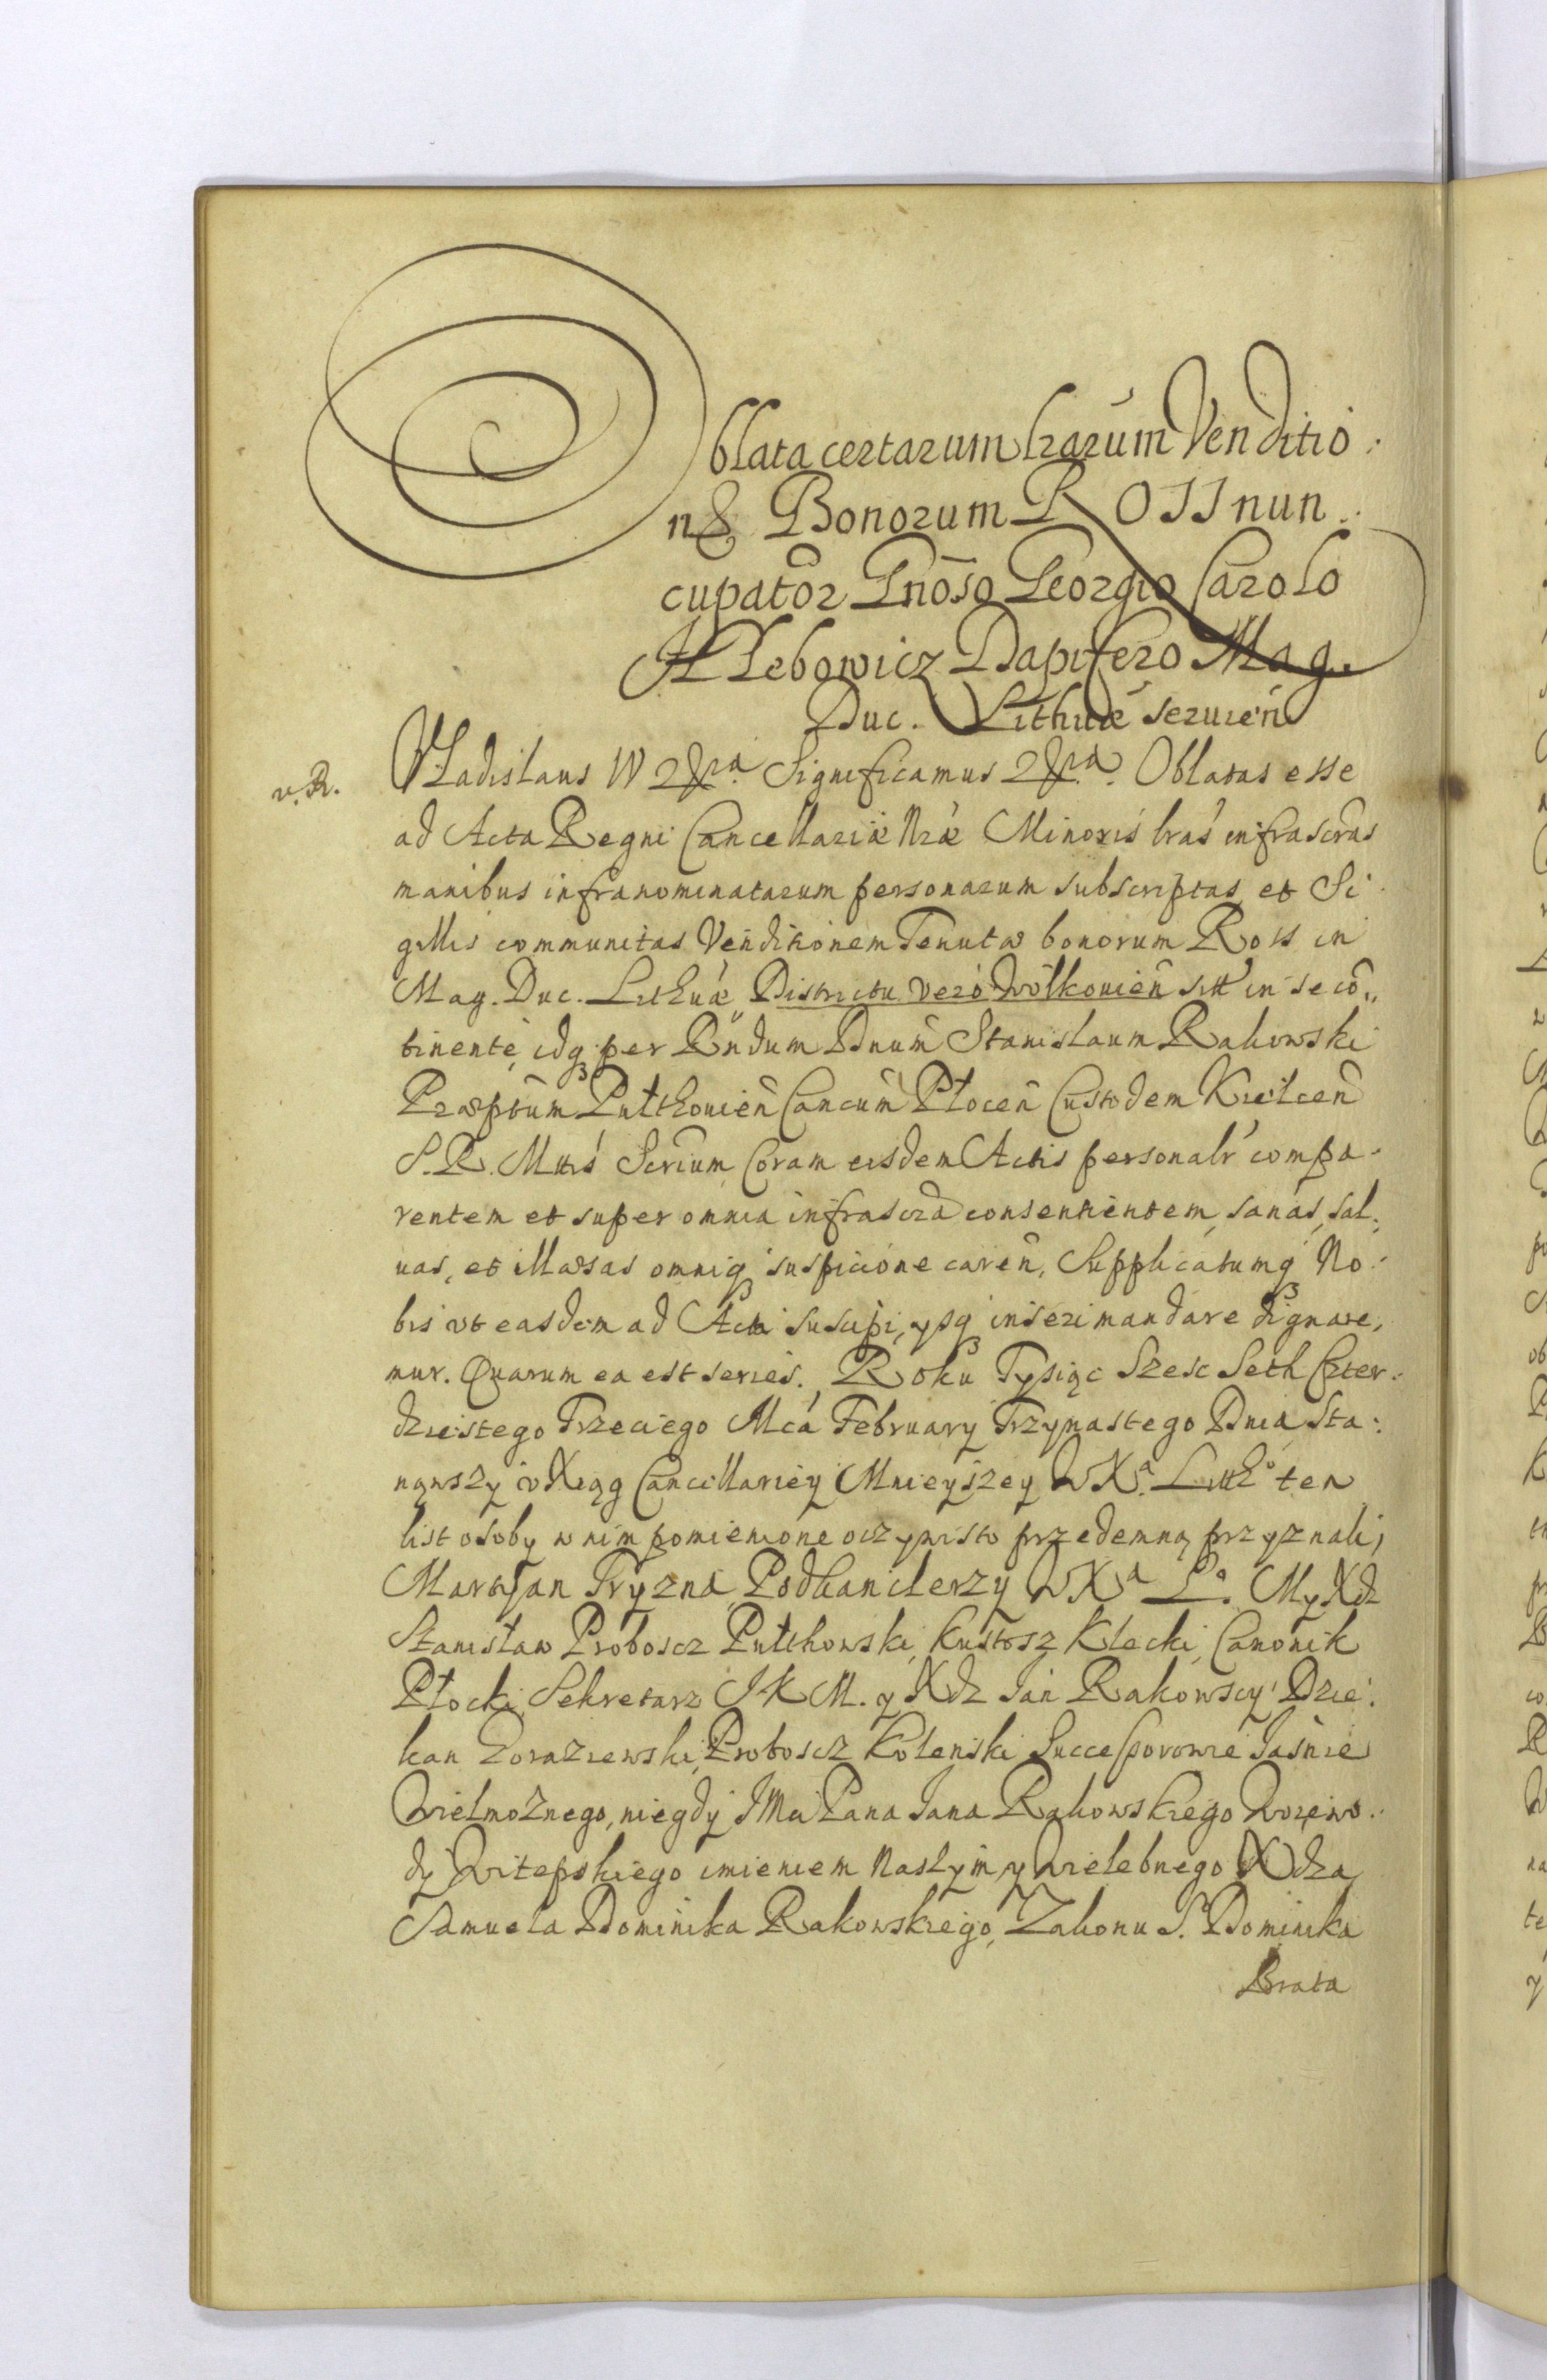 Oblata certarum lrarum Venditio:
nis Bonorum ROSS nun:
cupator Gnoso Georgio Carolo
Hlebowicz Dapifero Mag.
Duc. Lithuae seruien
v. R.
Vladislaus IV etc. Significamus etc. Oblatas esse
ad Acta Regni Cancellariæ Nræ Minoris lras infrascras
manibus infranominatarum personarum subscriptas, et Si:
gillis communitas Venditionem Tenutæ bonorum Ross in
Mag. Duc. Lithuæ Districtu vero Wolkouien sitt in se cō„
tinentē, idq per Rndum Dnum Stanislaum Rakowski
Præptum Pultouien Cancum Plocen Custodem Kielcen
S. R. Mttis Scrium Coram eisdem Actis personalr compa-
rentem et super omnia infrascra consentientem, sanas, sal:
uas, et illæsas omniq suspicione caren, Supplicatumq No:
bis vt easdem ad Acta suscipi, ysq inseri mandare dignare,
mur. Quarum ea est series. Roku Tysiąc Szesc Seth Czter:
dziestego Trzeciego Mca February Trzynastego Dnia, Sta:
nąwszy v Xiąg Cancellariey Mnieyszey W Xa. Litth° ten
list osoby w nim pomienione oczywisto przedemną przyznali,
Martsjan Tryzna Podkanclerzy W Xa L°. My Xdz
Stanisław Proboscz Pulthowski, Kustosz Klecki, Canonik
Płocki, Sekretarz J K M. y Xdz Jan Rakowscy Dzie:
kan Zoraziewski, Proboscz Kolenski Successorowie Jaśnie
Wielmożnego, niegdy JMci Pana Jana Rakowskiego Woiewo:
dy Witepskiego imieniem naszym y Wielebnego Xdza
Samuela Dominika Rakowskiego, Zakonu S. Dominika
Brata